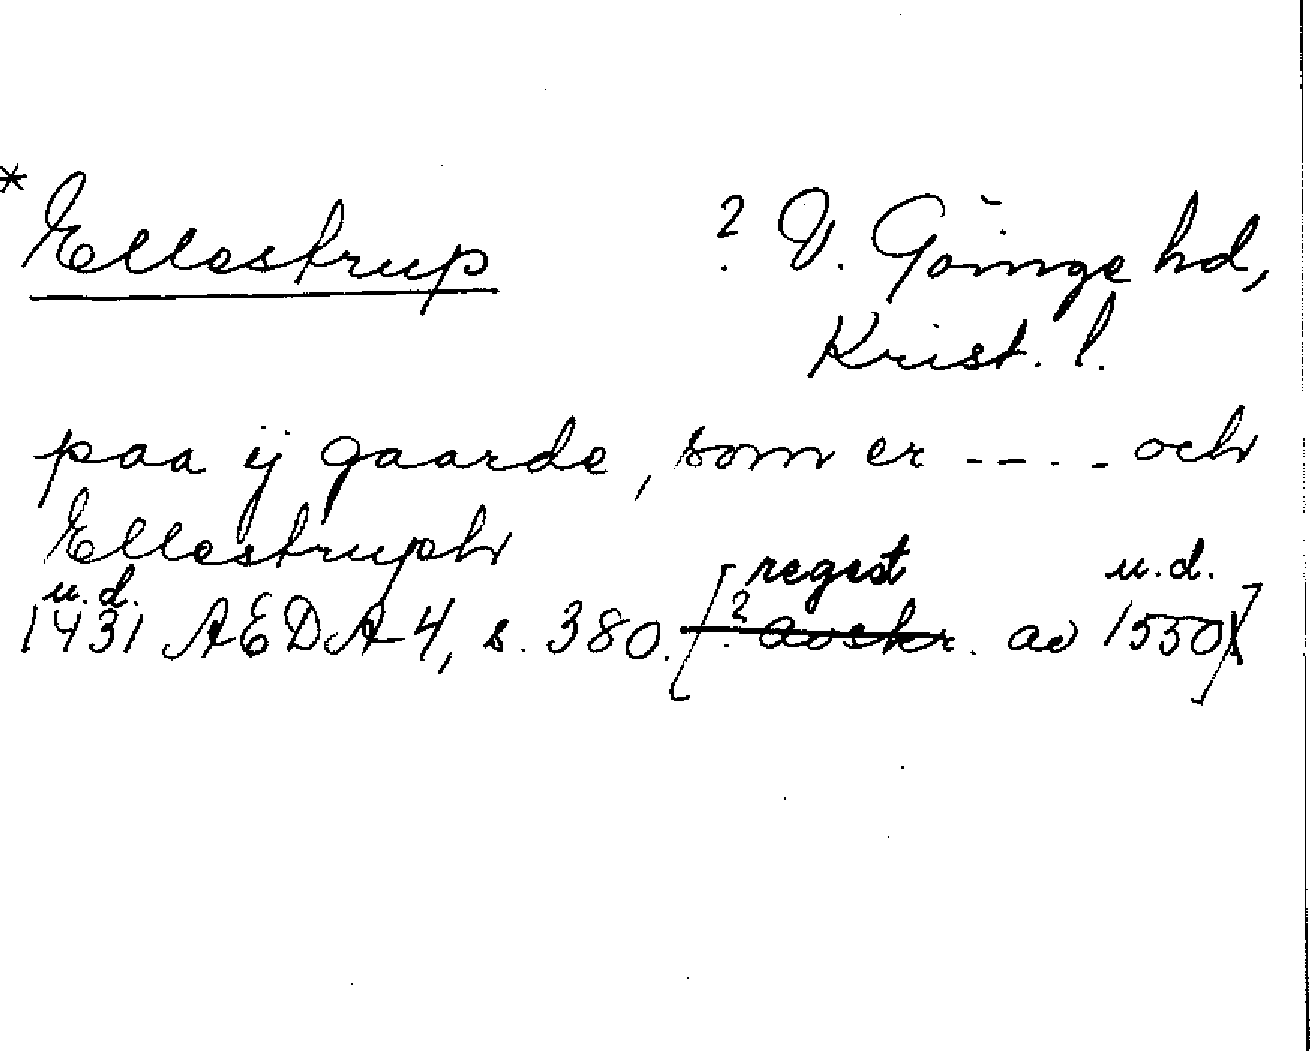 * Ellestrup ? V. Göinge hd,
Krist. l.
paa ij gaarde, som er ---- och
Ellestruph
u.d. regest u.d.
1431 AEDA 4, s. 380. [? avskr. av 1550]